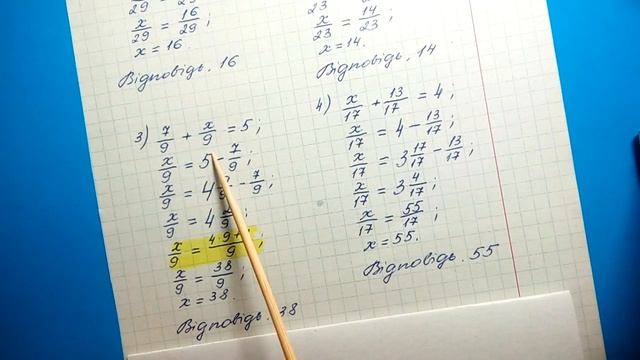 x/29 = 16/29;
x = 16.
Відповідь. 16
23 23
x/23 = 14/23;
x = 14.
Відповідь. 14
3) 7/9 + x/9 = 5;
x/9 = 5 - 7/9;
x/9 = 4 - 7/9;
x/9 = 4
x/9 = 4·9+ /9;
x/9 = 38/9;
x = 38.
Відповідь. 38
4) x/17 + 13/17 = 4;
x/17 = 4 - 13/17;
x/17 = 3 17/17 - 13/17;
x/17 = 3 4/17;
x/17 = 55/17;
x = 55.
Відповідь. 55